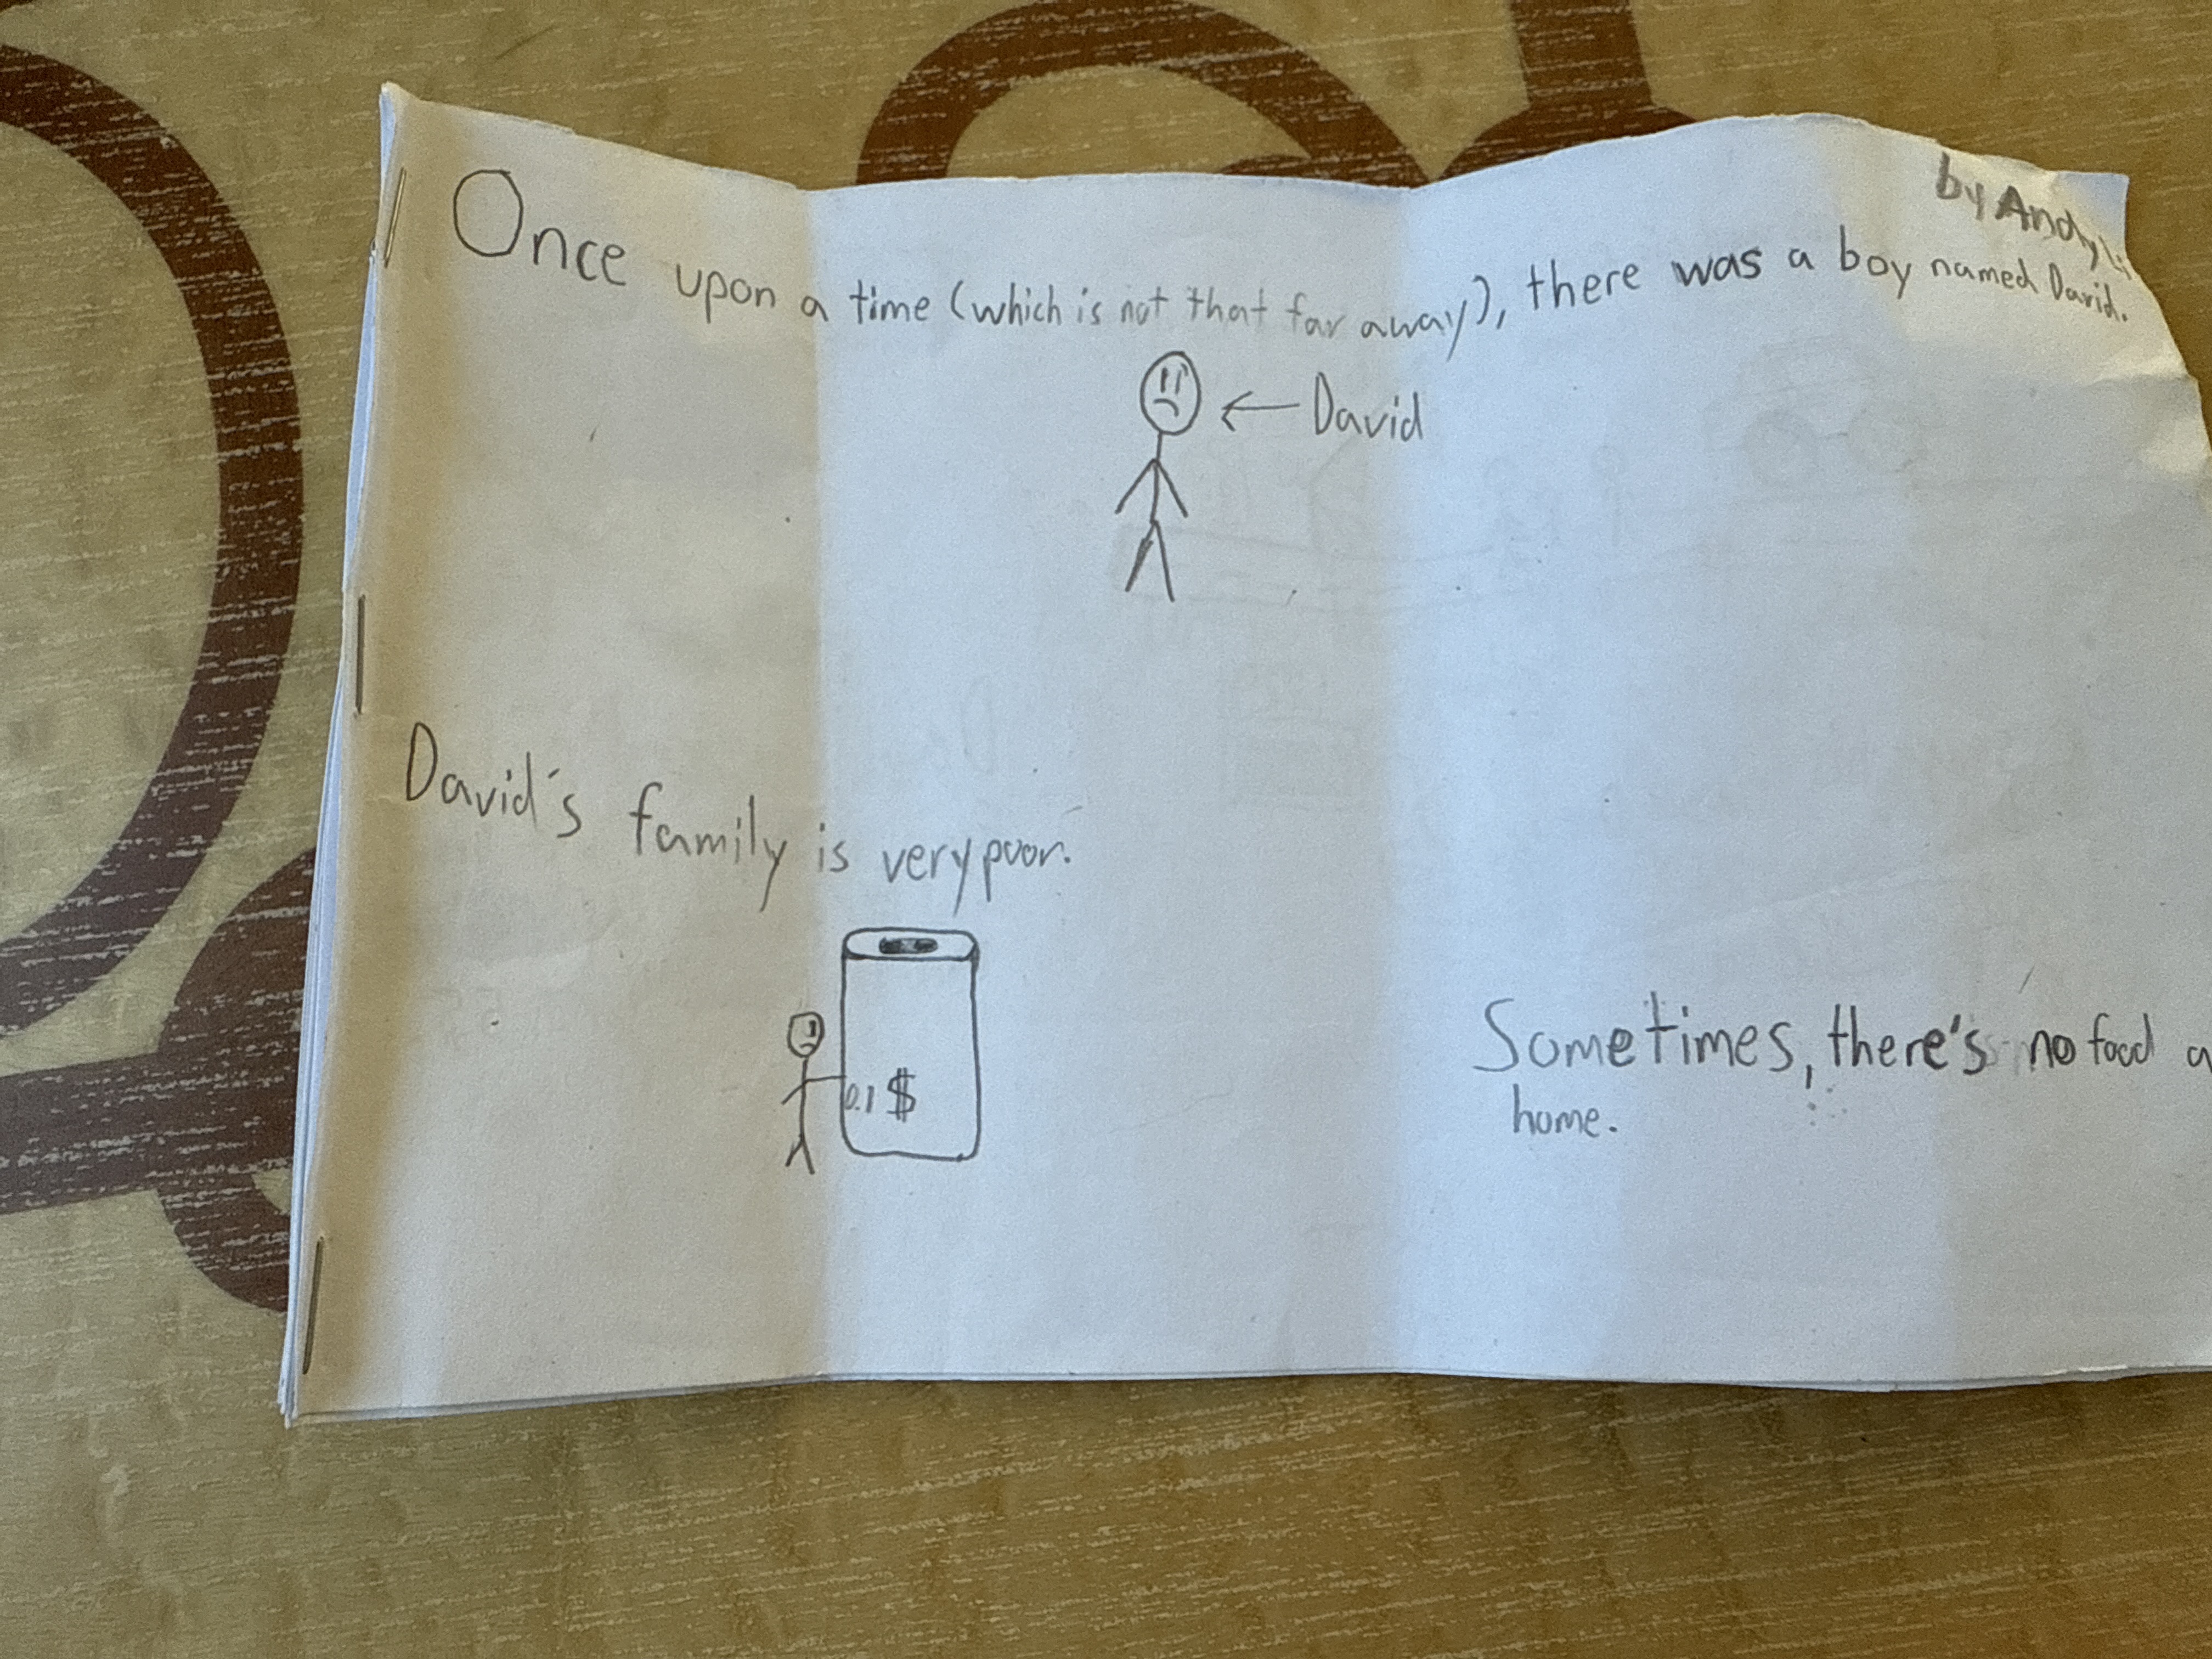 by Andy Li
Once upon a time (which is not that far away), there was a boy named David.
← David
David's family is very poor.
0.1 $
Sometimes, there's no food a
home.